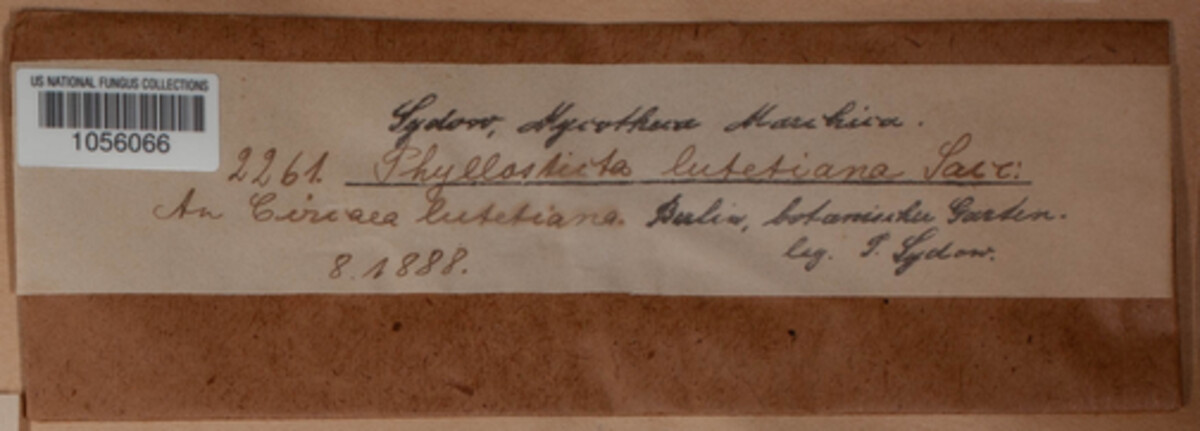 US NATIONAL FUNGUS COLLECTIONS
1056066
Sydow, Mycotheca Marchica.
2261. Phyllosticta lutetiana Sacc:
An Circaea lutetiana. Berlin, botanischer Garten.
8.1888. leg. P. Sydow.